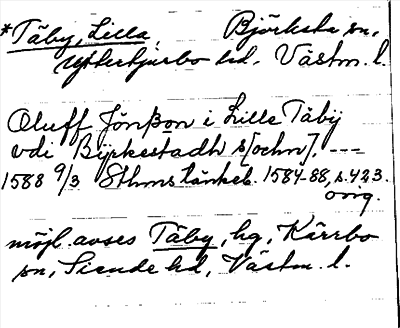 *Täby, Lilla, Björksta sn,
Yttertjurbo hd, Västm. l.
Oluff Jönßon i Lille Täbÿ
vdi Byrkestadh s[ochn]. ---
1588 9/3 Sthms tänkeb. 1584-88, s. 423.
orig.
möjl. avses Täby, hg, Kärrbo
sn, Siende hd, Västm. l.